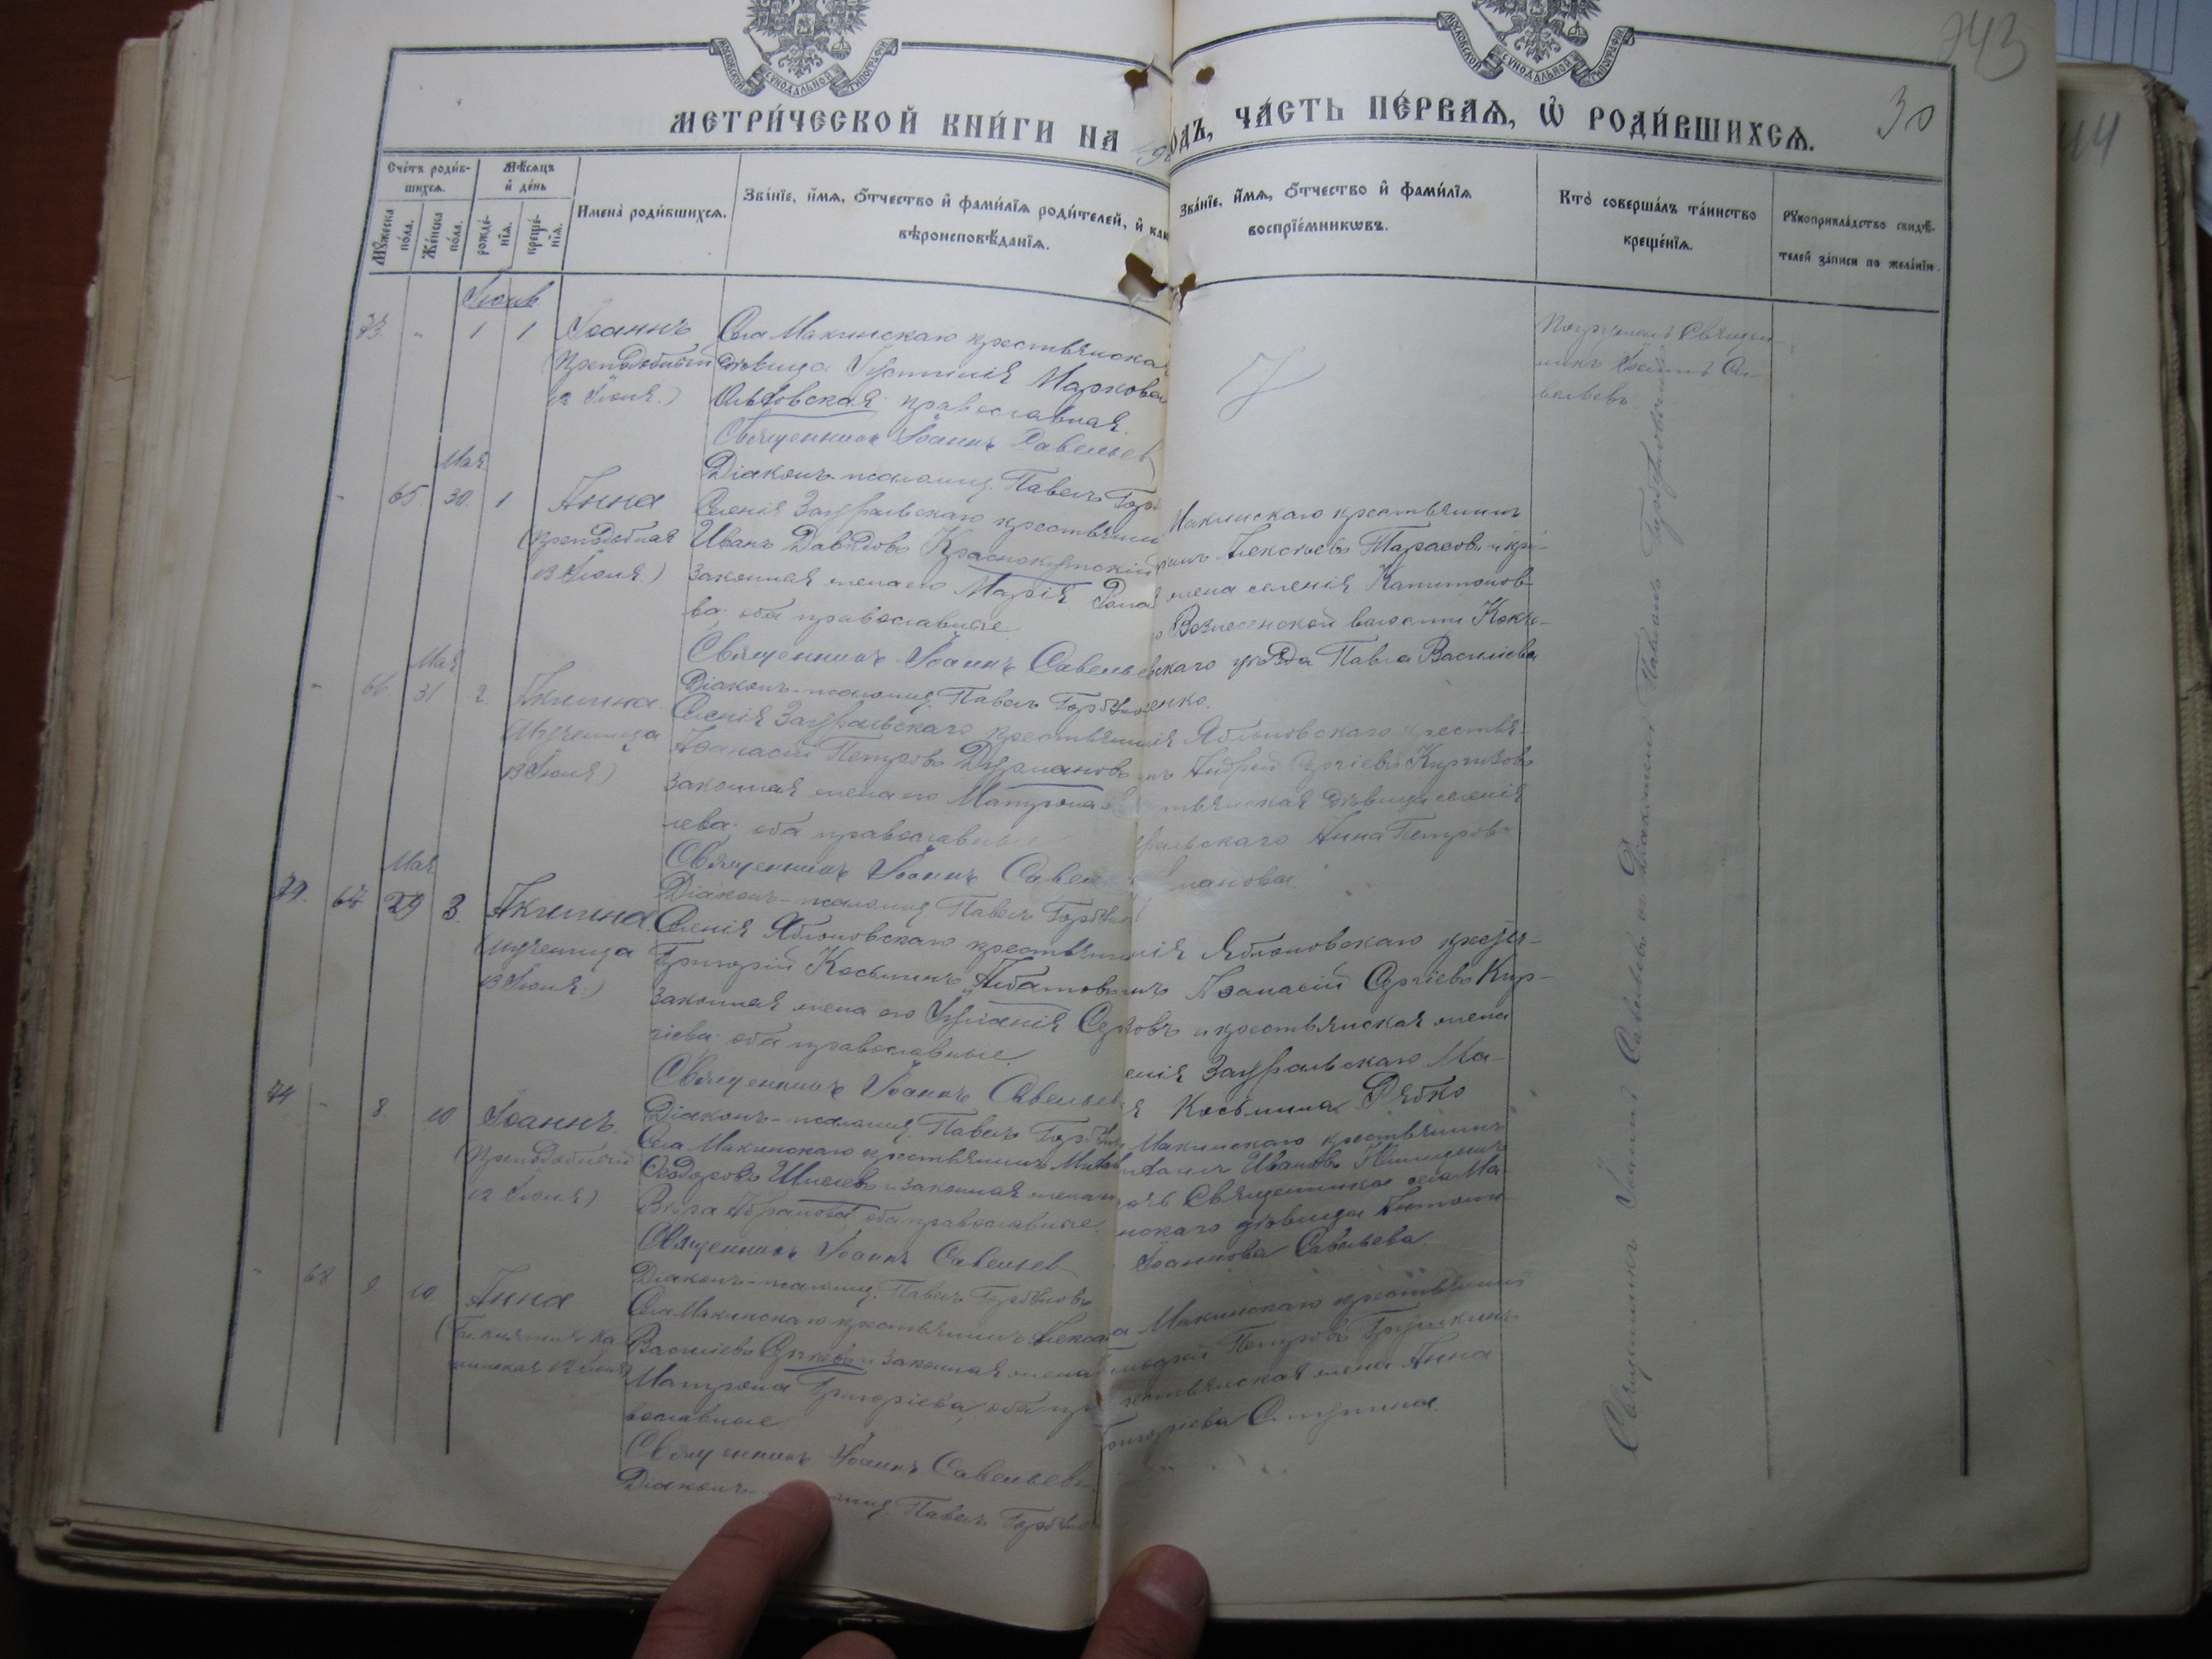 МОСКОВСКОЙ СѴНОДАЛЬНОЙ ТИПОГРАФІИ
МОСКОВСКОЙ СѴНОДАЛЬНОЙ ТИПОГРАФІИ
243
30
44
МЕТРИ́ЧЕСКОЙ КНИ́ГИ НА ОДЪ, ЧА́СТЬ ПЕ́РВАЯ, Ѡ҆ РОДИ́ВШИХСЯ.
Сче́тъ роди́в-
шихся.
Мѣ́сяцъ
и҆ де́нь
Мꙋ́жеска
по́ла.
Же́нска
по́ла.
рожде́-
нїя.
креще́-
нїя.
Имена̀ роди́вшихся.
Зва́нїе, и҆́мя, ѻ҆́тчество и҆ фами́лїя роди́телей, и҆ как
вѣроисповѣ́данїя.
Зва́нїе, и҆́мя, ѻ҆́тчество и҆ фами́лїя
воспрїе́мникѡвъ.
Кто̀ соверша́лъ та́инство
креще́нїя.
Рꙋкоприкла́дство свидѣ́-
телей за́писи по жела́нїю.
Іюнь
73. „ 1 1 Іоаннъ
(Преподобный
12 Іюня.)
Села Макинскаго крестьянская
дѣвица Іустинія Маркова
православная.
Священникъ Іоаннъ Савельев
Діаконъ-псаломщ. Павелъ Гор
Погружалъ Священ-
никъ Іоаннъ Са-
вельевъ
Мая
„ 65. 30. 1 Анна
(Преподобная
13 Іюня)
Селенія Зауральскаго крестьянин
Иванъ Давидовъ Краснокутскій
законная жена его Марія Рома
ва, оба православные
Священникъ Іоаннъ Савельев
Діаконъ-псаломщ. Павелъ Горб
Макинскаго крестьянинъ
Алексѣевъ Тарасовъ и кре-
жена селенія Капитонов-
Вознесенской волости Кокче-
вскаго уѣзда Павла Василіева
енко.
Мая
„ 66. 31 2 Акилина
(Мученица
13 Іюня)
Селенія Зауральскаго крестьянин
Афанасій Петровъ Дурмановъ
законная жена его Матрона
лева, оба православны
Священникъ Іоаннъ Савел
Діаконъ-псаломщ. Павелъ Горб
ія Яблоновскаго крестья-
нъ Андрей Сергіевъ Киргизовъ
стьянская дѣвица селенія
уральскаго Анна Петрова
манова.
Мая
67 29 3. Акилина
(Мученица
13 Іюня)
Селенія Яблоновскаго крестьянин
Григорій Косьминъ
законная жена его Іуліанія Сер
гіева оба православные
Священникъ Іоаннъ Савельев
Діаконъ-псаломщ. Павелъ Горб
ія Яблоновскаго крестья-
нъ Афанасій Сергіевъ Кир-
зовъ и крестьянская жена
енія Зауральскаго Ма-
я Косьмина Рябко
74 „ 8 10 Іоаннъ
(Преподобный
12 Іюня)
Села Макинскаго крестьянинъ
Ѳеодоровъ Шмелевъ и законная жена его
Вѣра Абрамова, оба православные
Священникъ Іоаннъ Савельев
Діаконъ-псаломщ. Павелъ Горб
Макинскаго крестьянинъ
Ивановъ
дочь Священника села Ма-
нскаго дѣвица Антони
Іоаннова Савельева.
„ 68 9 10 Анна
(Благовѣрная Ка-
шинская 12 Іюня)
Села Макинскаго крестьянинъ Алексѣ
Василіевъ и законная жена
Матрона Григоріева, оба пра
вославные
Священникъ Іоаннъ Савельевъ
Діаконъ Павелъ Горб
Макинскаго крестьянинъ
Петровъ
крестьянская жена Анна
Григоріева
Священникъ Іоаннъ Савельевъ съ Діакономъ Павломъ